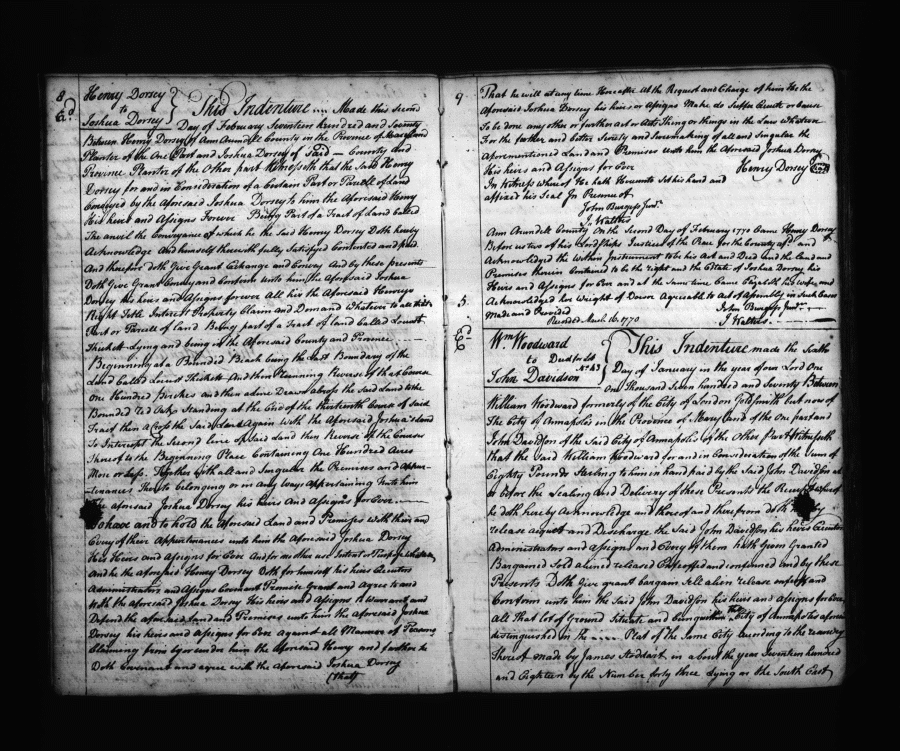 8
Henry Dorsey
to
Joshua Dorsey
This Indenture .... Made this Second
Day of February Seventeen hundred and Seventy
Between Henry Dorsey of Ann Arundel County in the Province of Maryland
Planter of the One Part and Joshua Dorsey of Said County and
Province Planter of the Other part Witnesseth that the Said Henry
Dorsey for and in Consideration of a Certain Part or Parcell of Land
Conveyed by the aforesaid Joshua Dorsey to him the Aforesaid Henry
His heirs and Assigns Forever Being Part of a Tract of Land Called
The anvil the Conveyance of which he the Said Henry Dorsey Doth hereby
Acknowledge And himself therewith fully Satisfyed Contented and paid
And therefor doth Give Grant Exchange and Convey And by these presents
Doth Give Grant Convey and Confirm unto him the Aforesaid Joshua
Dorsey his heirs and Assigns forever All his the Aforesaid Henrys
Right Title Interest Property Claim and Demand Whatever to all that
Part or Parcell of Land Being part of a Tract of Land Called Locust
Thickett Lying and being in the Aforesaid County and Province
Beginning at a Bounded Beach being the Last Boundary of the
Land Called Locust Thickett And then Running Reverse of that Course
One hundred Perches and then a line Drawn across the said Land to the
Bounded Red Oak Standing at the End of the thirteenth Course of Said
Tract then a Cross the Said Land Again with the Aforesaid Joshua's Land
To Intercept the Second line of Said Land then Reverse of the Courses
Thereof to the Beginning Place Containing One Hundred Acres
More or Less. Together with all and Singular the Premises and Appur-
-tenances thereto belonging or in any Ways Appertaining Unto him
The aforesaid Joshua Dorsey his heirs And Assigns for Ever
To have and to hold the aforesaid Land and Premises With their and
Every of their Appurtenances unto him the Aforesaid Joshua Dorsey
His Heirs and Assigns for Ever And for no other use Intent or Purpose whatever
And he the aforesaid Henry Dorsey Doth for himself his heirs Executors
Administrators and Assigns Covenant Promise Grant and Agree to and
With the aforesaid Joshua Dorsey his heirs and Assigns to Warrant and
Defend the aforesaid Land and Premises unto him the Aforesaid Joshua
Dorsey his heirs and Assigns for Ever against all Manner of Persons
Claiming from by or under him the Aforesaid Henry and further he
Doth Covenant and agree with the aforesaid Joshua Dorsey
(that)
9
That he will at any time Hereafter At the Request and Charge of him the
Aforesaid Joshua Dorsey his heirs or Assigns Make do Suffer Execute or Cause
To be done any other or further Act or Acts Thing or things in the Law Whatever
For the further and better Surety and Suremaking of all and Singular the
Aforementioned Land and Premises Unto him the Aforesaid Joshua Dorsey
His heirs and Assigns for Ever
Henry Dorsey
In Witness Whereof He hath Hereunto Set his hand and
affixed his Seal In Presence of
John Burgess Junr.
J. Walters
Ann Arundel County On the Second Day of February 1770 Came Henry Dorsey
Before us two of his Lordships Justices of the Peace for the County afsd. and
Acknowledged the Within Instrument to be his Act and Deed and the Land and
Premises therein Contained to be the right and the Estate of Joshua Dorsey his
Heirs and Assigns for Ever and at the same time Came Elizabeth his Wife and
Acknowledged her Wright of Dower Agreeable to Act of Assembly in Such Cases
Made and Provided
John Burgess Junr.
J Walters
Recorded March 16. 1770
5.
Wm. Woodward
to Deed for Lot
No. 43
John Davidson
This Indenture made the
Day of January in the year of our Lord One
One Thousand Seven hundred and Seventy Between
William Woodward formerly of the City of London Goldsmith but now of
The City of Annapolis in the Province of Maryland of the One part and
John Davidson of the Said City of Annapolis of the Other Part Witnesseth
that the said William Woodward for and in Consideration of the Sum of
Eighty Pounds Sterling to him in hand paid by the Said John Davidson at
or before the Sealing and Delivery of these Presents the Receipt whereof
he doth hereby Acknowledge and thereof and therefrom doth
release acquit and Discharge the Said John Davidson his heires Executors
Administrators and assigns and Every of them hath Given Granted
Bargained Sold aliened released Enfeoffed and confirmed and by these
Presents Doth Give grant bargain Sell alien release enfeoff and
Confirm unto him the Said John Davidson his heirs and assigns for Ever
All that lot of Ground Situate and being within the City of Annapolis aforesaid
distinguished in the ---- Plat of the Same City according to the resurvey
Thereof made by James Stoddart in or about the year Seventeen hundred
and Eighteen by the Number forty three Lying on the South East